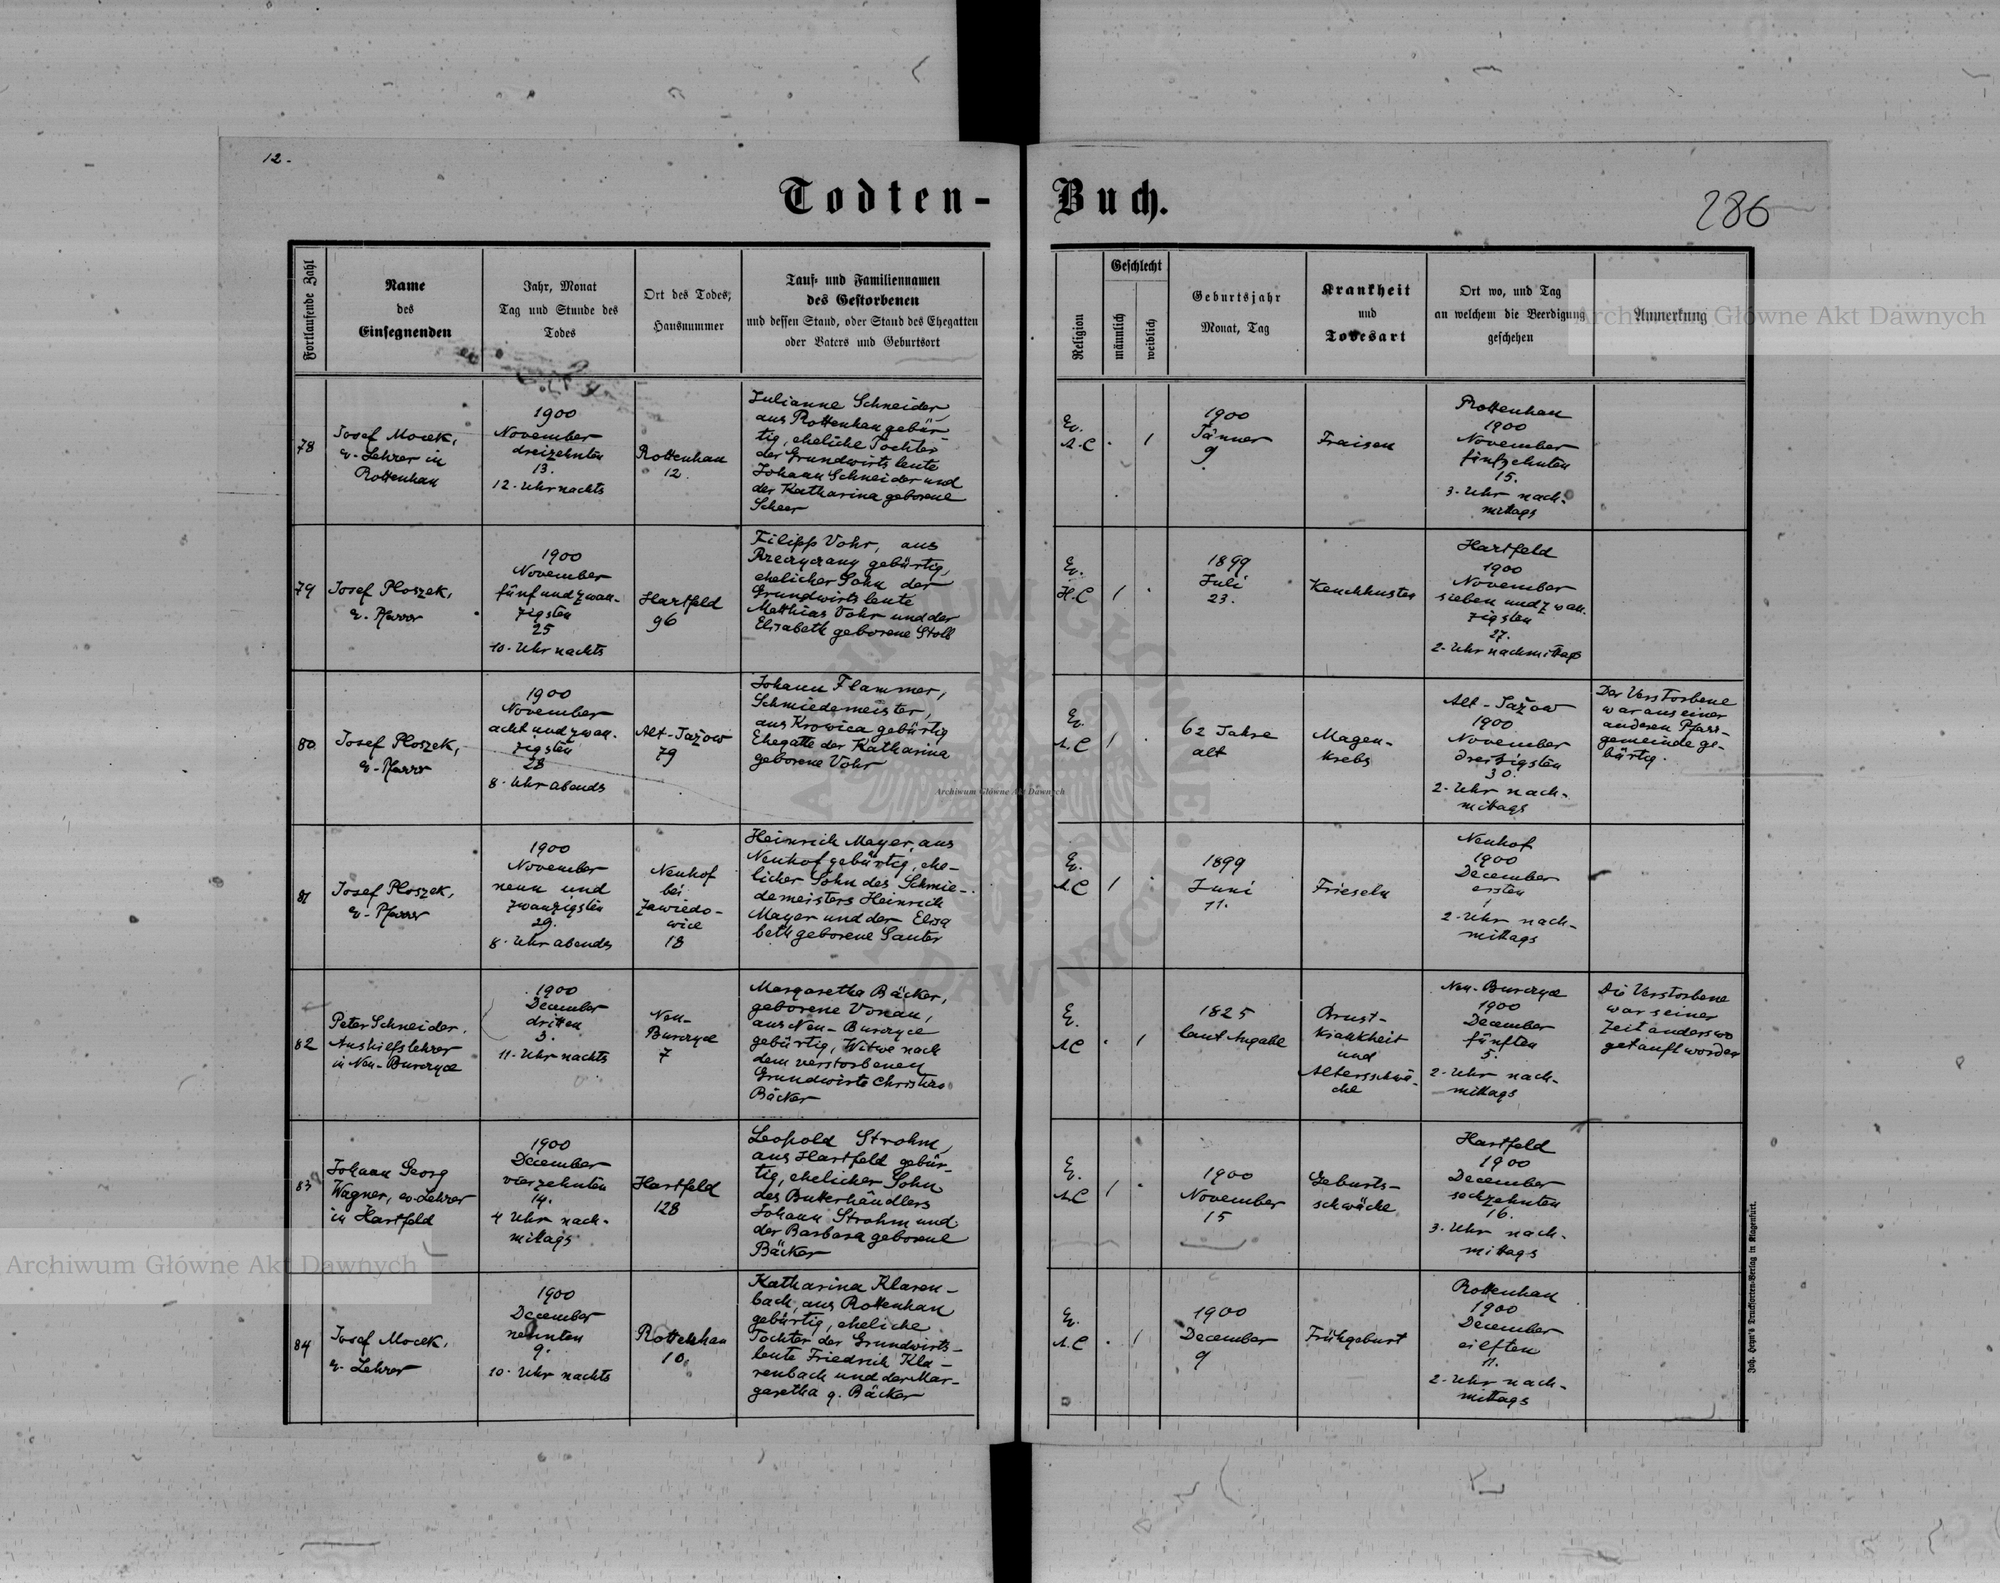 12.
Todten-Buch.
286
Fortlaufende Zahl
Name
des
Einsegnenden
Jahr, Monat
Tag und Stunde des
Todes
Ort des Todes,
Hausnummer
Tauf- und Familiennamen
des Gestorbenen
und dessen Stand, oder Stand des Ehegatten
oder Vaters und Geburtsort
Religion
Geschlecht
männlich
weiblich
Geburtsjahr
Monat, Tag
Krankheit
und
Todesart
Ort wo, und Tag
an welchem die Beerdigung
geschehen
Anmerkung
78
Josef Mocek,
ev. Lehrer in
Rottenhan
1900
November
dreizehnten
13.
12. Uhr nachts
Rottenhan
12.
Julianne Schneider,
aus Rottenhan gebür-
tig, eheliche Tochter
der Grundwirtsleute
Johann Schneider und
der Katharina geborene
Scheer
Ev.
A.C
1
1900
Jänner
9
Fraisen
Rottenhan
1900
November
fünfzehnten
15.
3. Uhr nach-
mittags
79
Josef Ploszek,
ev. Pfarrer
1900
November
fünfundzwan-
zigsten
25
10. Uhr nachts
Hartfeld
96
Filipp Vohr, aus
gebürtig,
ehelicher Sohn der
Grundwirtsleute
Matthias Vohr und der
Elisabeth geborene Stoll
Ev.
H.C
1
1899
Juli
23.
Keuchhusten
Hartfeld
1900
November
siebenundzwan-
zigsten
27.
2. Uhr nachmittags
80
Josef Ploszek,
ev. Pfarrer
1900
November
achtundzwan-
zigsten
28
8. Uhr abends
Alt-Jażow
79
Johann Flammer,
Schmiedemeister,
aus Krowica gebürtig
Ehegatte der Katharina
geborene Vohr
Ev.
A.C
1
62 Jahre
alt
Magen-
krebs
Alt-Jażow
1900
November
dreißigsten
30.
2. Uhr nach-
mittags
Der Verstorbene
war aus einer
anderen Pfarr-
gemeinde ge-
bürtig.
81
Josef Ploszek,
ev. Pfarrer
1900
November
neun und
zwanzigsten
29.
8. Uhr abends
Neuhof
bei
Zawiedo-
wice
18
Heinrich Mayer, aus
Neuhof gebürtig, ehe-
licher Sohn des Schmie-
demeisters Heinrich
Mayer und der Elisa
beth geborene Sauter
Ev.
A.C
1
1899
Juni
11.
Frieseln
Neuhof
1900
December
ersten
1
2. Uhr nach-
mittags
82
Peter Schneider,
Aushilfslehrer
in Neu-Burczyce
1900
December
dritten
3.
11. Uhr nachts
Neu-
Burczyce
7
Margaretha Bäcker,
geborene
aus Neu-Burczyce
gebürtig, Witwe nach
dem verstorbenen
Grundwirte Christian
Bäcker
Ev.
A.C
1
1825
laut Angabe
Brust-
krankheit
und
Altersschwä-
che
Neu-Burczyce
1900
December
fünften
5.
2. Uhr nach-
mittags
Die Verstorbene
war seiner
Zeit anderswo
getauft worden
83
Johann Georg
Wagner, ev. Lehrer
in Hartfeld
1900
December
vierzehnten
14.
4 Uhr nach-
mittags
Hartfeld
128
Leopold Strohm,
aus Hartfeld gebür-
tig, ehelicher Sohn
des Butterhändlers
Johann Strohm und
der Barbara geborene
Bäcker
Ev.
A.C
1
1900
November
15
Geburts-
schwäche
Hartfeld
1900
December
sechzehnten
16.
3. Uhr nach-
mittags
84
Josef Mocek,
ev. Lehrer
1900
December
neunten
9.
10. Uhr nachts
Rottenhan
10.
Katharina Klaren-
bach, aus Rottenhan
gebürtig, eheliche
Tochter der Grundwirts-
leute Friedrich Kla-
renbach und der Mar-
garetha g. Bäcker
Ev.
A.C
1
1900
December
9
Frühgeburt
Rottenhan
1900
December
eilften
11.
2. Uhr nach-
mittags
Joh. Heyn's Drucksorten-Verlag in Klagenfurt.
Archiwum Główne Akt Dawnych
Archiwum Główne Akt Dawnych
Archiwum Główne Akt Dawnych
ARCHIWUM GŁÓWNE AKT DAWNYCH